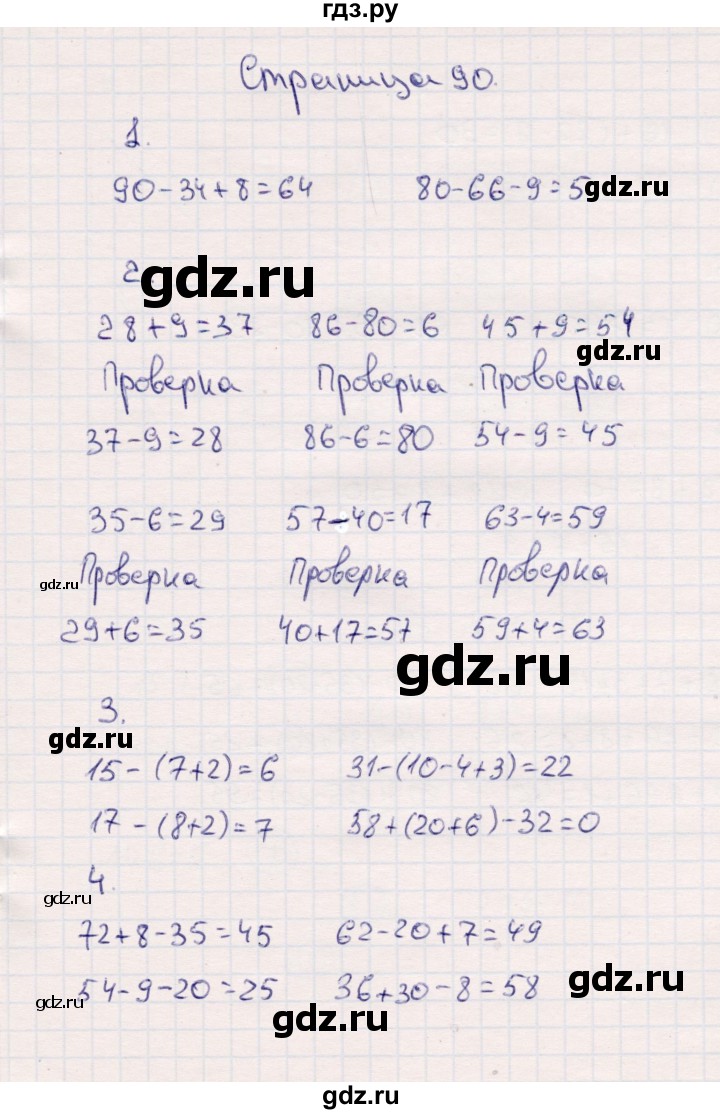 гдз.ру
Страница 90.
1.
90-34+8=64 80-66-9=5
gdz.ru
2
gdz.ru
28+9=37 86-80=6 45+9=54
gdz.ru
Проверка Проверка Проверка
37-9=28 86-6=80 54-9=45
35-6=29 57-40=17 63-4=59
gdz.ru
Проверка Проверка Проверка
29+6=35 40+17=57 59+4=63
gdz.ru
3.
gdz.ru
15-(7+2)=6 31-(10-4+3)=22
17-(8+2)=7 58+(20+6)-32=0
4.
gdz.ru
72+8-35=45 62-20+7=49
54-9-20=25 36+30-8=58
gdz.ru
gdz.ru
gdz.ru
gdz.ru